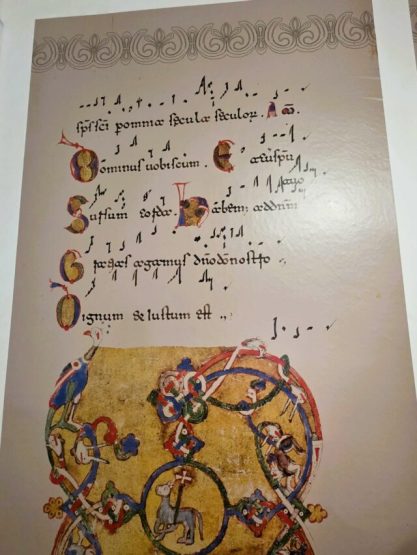 sp̄s sc̄i p omnia secula seculoꝝ. Am̄.
Dominus uobiscum. Et cū sp̄u
Sursum corda. Habem; ad dn̄m
Gratias agamus dn̄o dō nostro
Dignum & iustum est